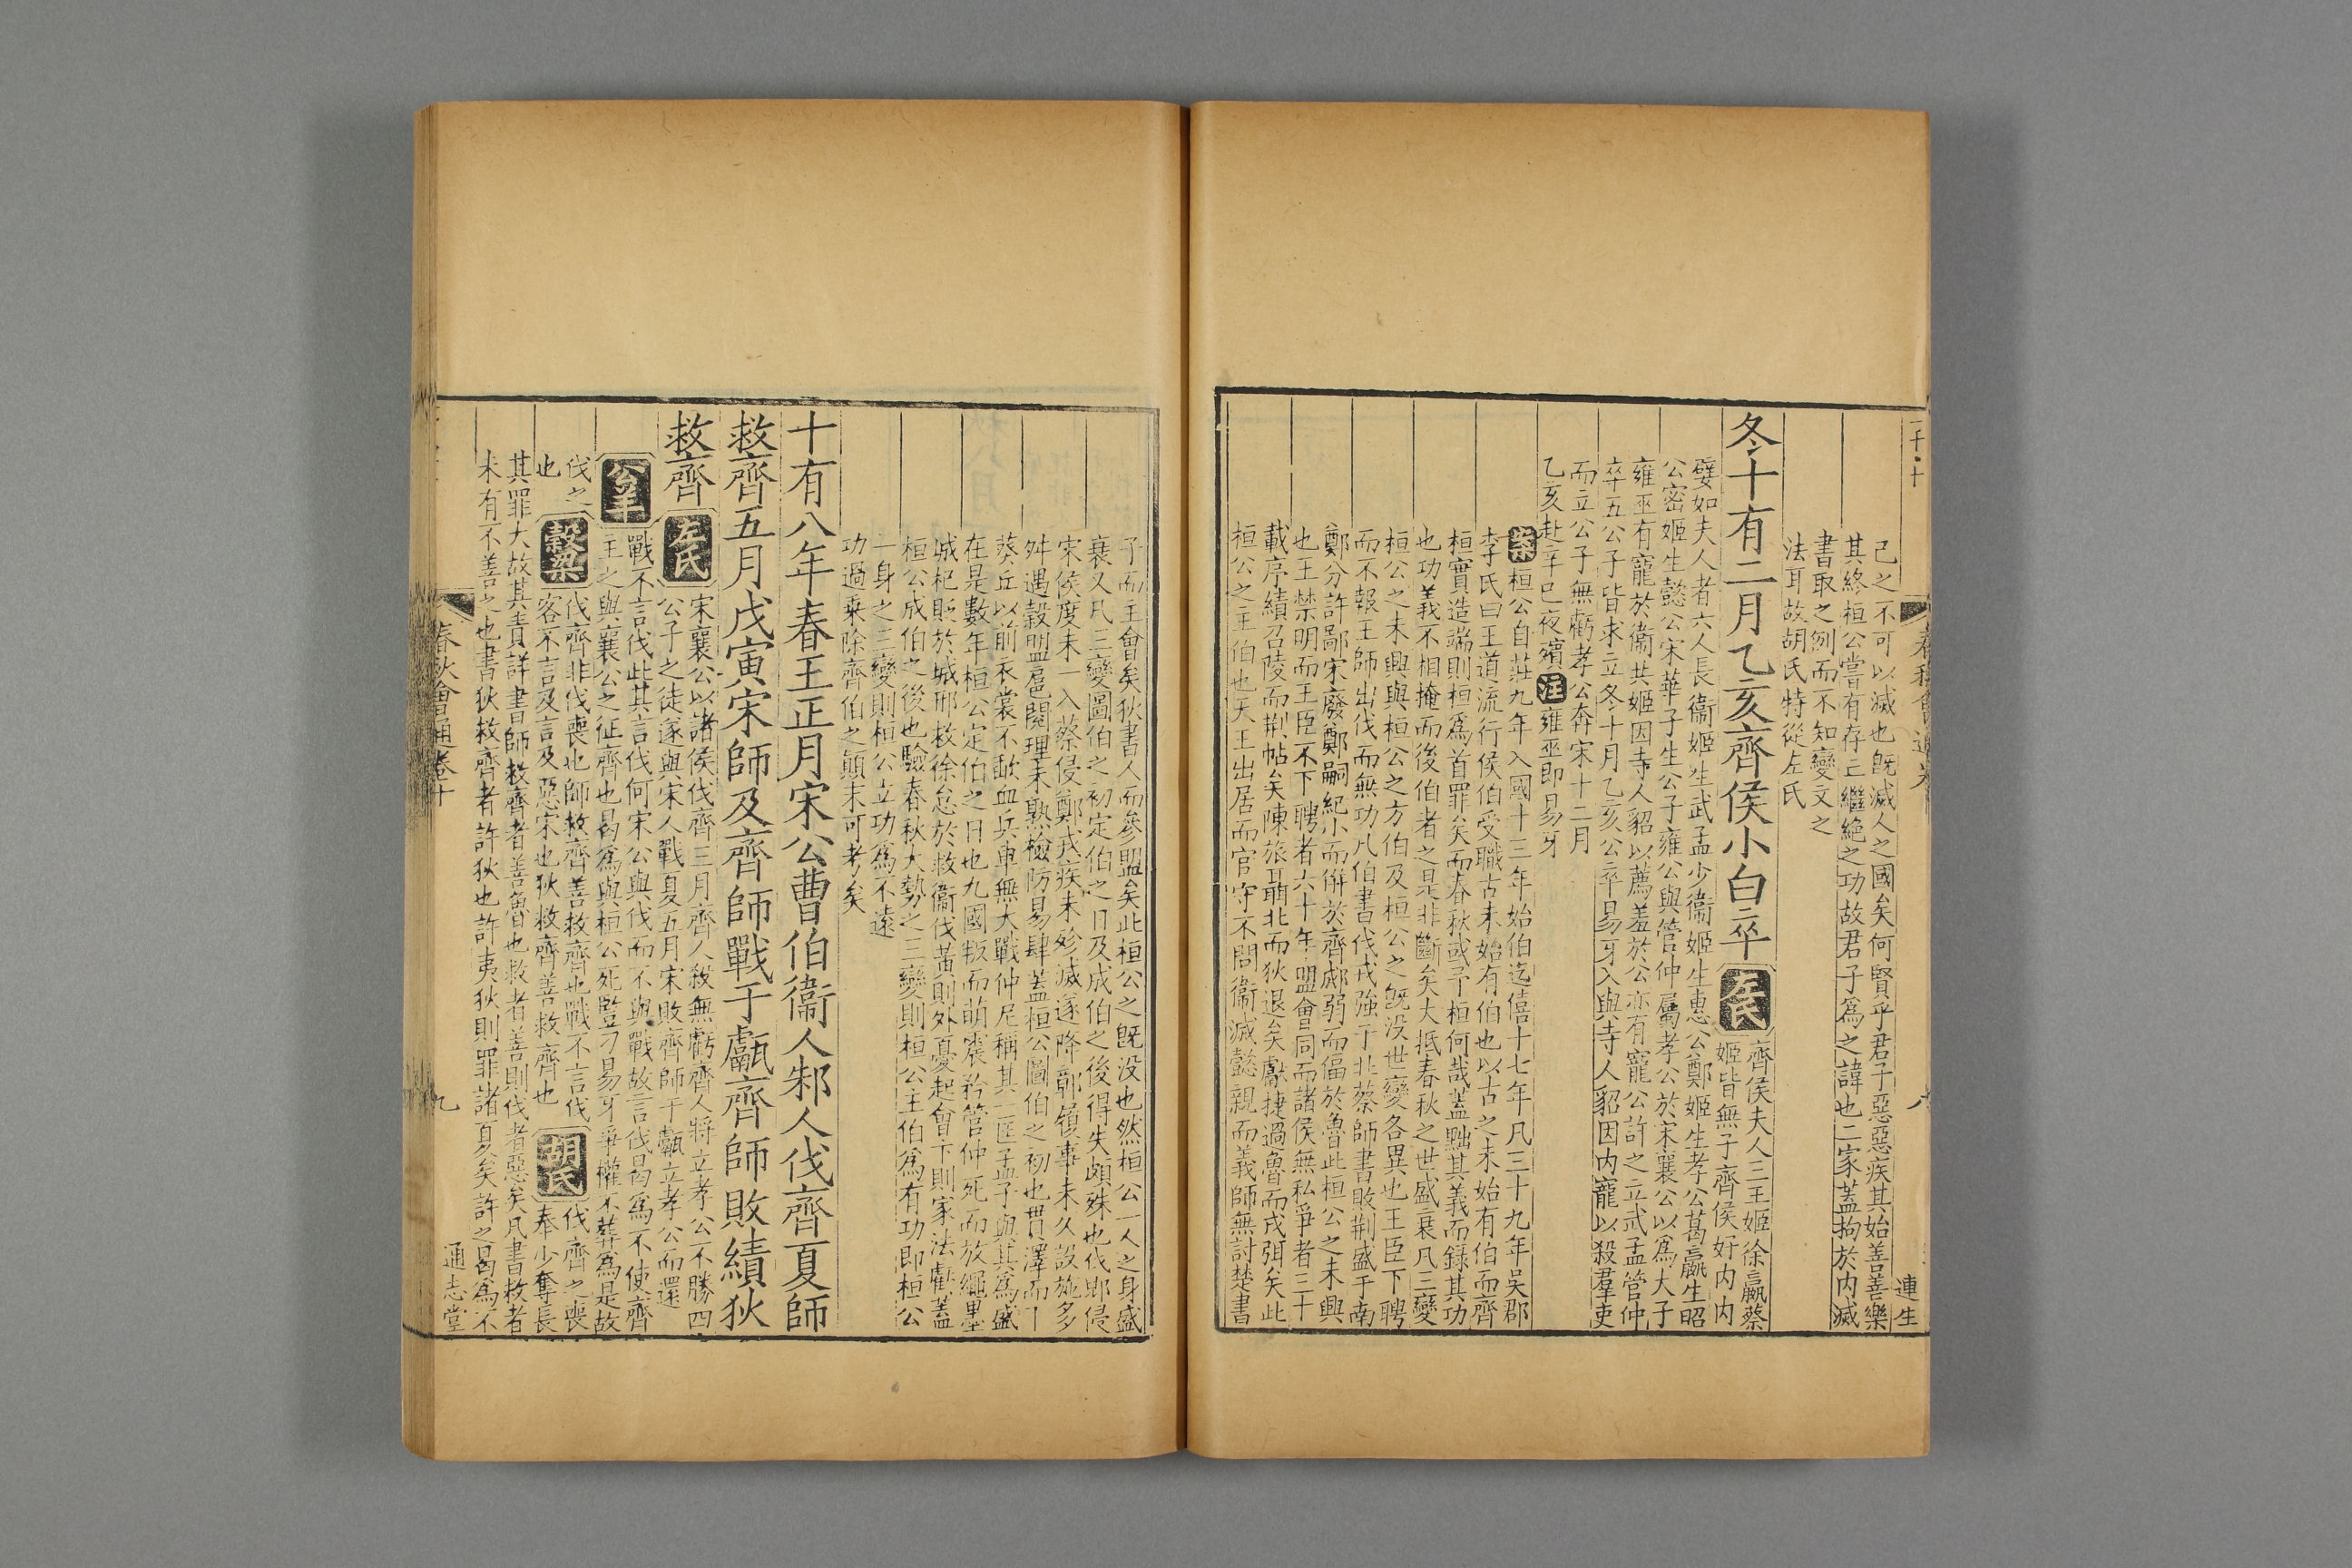 己之不可以滅也既滅人之國矣何賢乎君子惡惡疾其始善善樂
其終桓公嘗有存亡繼絕之功故君子爲之諱也二家蓋拘於内滅
書取之例而不知變文之
法耳故胡氏特從左氏
冬十有二月乙亥齊侯小白卒
左氏
齊侯夫人三王姬徐嬴蔡
姬皆無子齊侯好内内
嬖如夫人者六人長衞姬生武孟少衞姬生惠公鄭姬生孝公葛嬴生昭
公密姬生懿公宋華子生公子雍公與管仲屬孝公於宋襄公以爲大子
雍巫有寵於衞共姬因寺人貂以薦羞於公亦有寵公許之立武孟管仲
卒五公子皆求立冬十月乙亥公卒易牙入與寺人貂因内寵以殺羣吏
而立公子無虧孝公奔宋十二月
乙亥赴辛巳夜殯 注 雍巫即易牙
案 桓公自莊九年入國十三年始伯迄僖十七年凡三十九年吳郡
李氏曰王道流行侯伯受職古未始有伯也以古之未始有伯而齊
桓實造端則桓爲首罪矣而春秋或予桓何哉蓋黜其義而錄其功
也功義不相掩而後伯者之是非斷矣大抵春秋之世盛衰凡三變
桓公之未興與桓公之方伯及桓公之既没世變各異也王臣下聘
而不報王師出伐而無功凡伯書伐戎強于北蔡師書敗荆盛于南
鄭分許鄙宋廢鄭嗣紀小而倂於齊郕弱而偪於魯此桓公之未興
也王禁明而王臣不下聘者六十年盟會同而諸侯無私爭者三十
載序績召陵而荆帖矣陳旅聶北而狄退矣獻捷過魯而戎弭矣此
桓公之主伯也天王出居而官守不問衞滅懿親而義師無討楚書
春秋會通卷
八
連生
子而主會矣狄書人而參盟矣此桓公之既没也然桓公一人之身盛
衰又凡三變圖伯之初定伯之日及成伯之後得失頗殊也伐郳侵
宋侯度未一入蔡侵鄭戎疾未殄滅遂降鄣嶺事未久設施多
舛遇穀盟扈閱理未熟檢防易肆蓋桓公圖伯之初也貫澤而下
葵丘以前衣裳不歃血兵車無大戰仲尼稱其一匡孟子與其爲盛
在是數年桓公定伯之日也九國叛而萌震矜管仲死而放繩墨
城杞貶於城邢救徐怠於救衞伐黃則外憂起會卞則家法虧蓋
桓公成伯之後也驗春秋大勢之三變則桓公主伯爲有功即桓公
一身之三變則桓公立功爲不遠
功過乘除齊伯之顛末可考矣
十有八年春王正月宋公曹伯衞人邾人伐齊夏師
救齊五月戊寅宋師及齊師戰于甗齊師敗績狄
救齊
左氏
宋襄公以諸侯伐齊三月齊人殺無虧齊人將立孝公不勝四
公子之徒遂與宋人戰夏五月宋敗齊師于甗立孝公而還
公羊
戰不言伐此其言伐何宋公與伐而不與戰故言伐曷爲不使齊
主之與襄公之征齊也曷爲與桓公死豎刁易牙爭權不葬爲是故
伐之
也
穀梁
伐齊非伐喪也師救齊善救齊也戰不言伐
客不言及言及惡宋也狄救齊善救齊也
胡氏
伐齊之喪
奉少奪長
其罪大故其責詳書師救齊者善魯也救者善則伐者惡矣凡書救者
未有不善之也書狄救齊者許狄也許夷狄則罪諸夏矣許之曷爲不
春秋會通卷十
九
通志堂